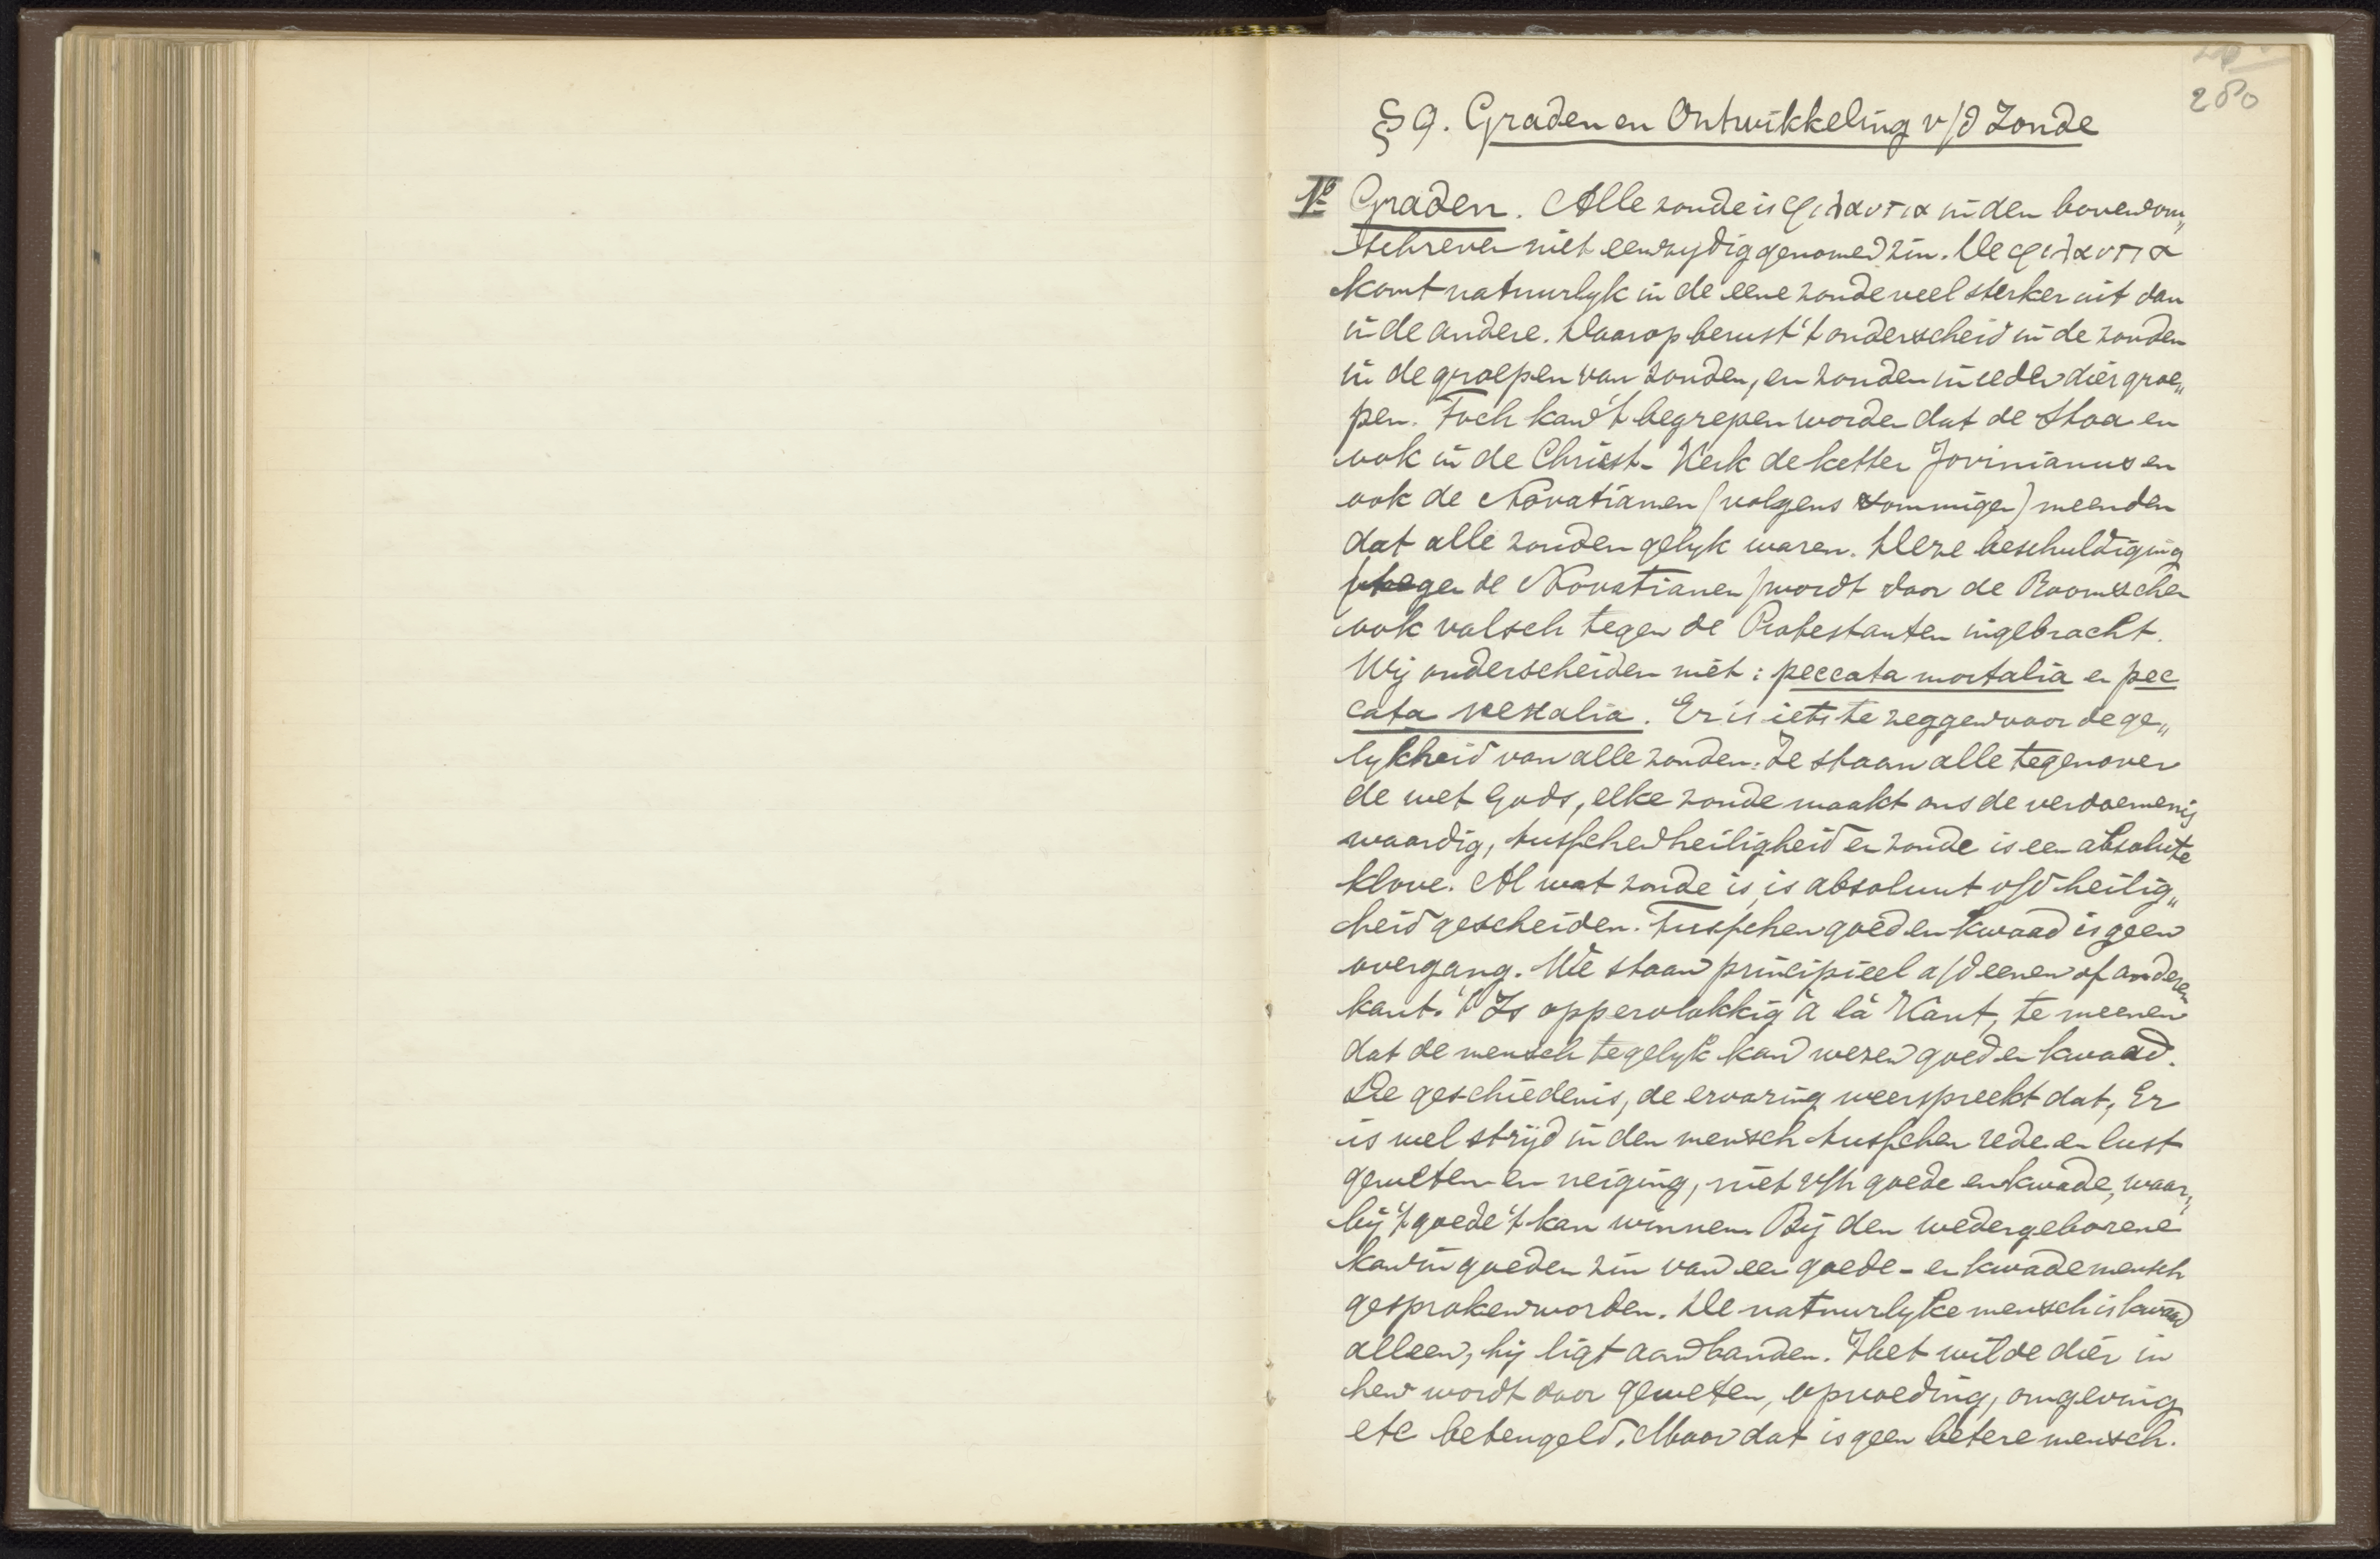 280
§ 9. Graden en Ontwikkeling v/d Zonde
1º Graden. Alle zonde is φιλαυτια in den bovenom„
schreven niet eenzydig genomen zin. De φιλαυτια
komt natuurlyk in de eene zonde veel sterker uit dan
in de andere. Daarop berust 't onderscheid in de zonden
in de groepen van zonden, en zonden in ieder dier groe„
pen. Toch kan 't begrepen worden dat de Stoa en
ook in de Christ. Kerk de ketter Jovinianus en
ook de Novatianen (volgens sommigen) meenden
dat alle zonden gelyk waren. Deze beschuldiging
(tegen de Novatianen) wordt door de Roomschen
ook valsch tegen de Protestanten ingebracht.
Wij onderscheiden niet: peccata mortalia en pec
cata venialia. Er is iets te zeggen voor de ge„
lykheid van alle zonden. Ze staan alle tegenover
de wet Gods, elke zonde maakt ons de verdoemenis
waardig, tusschen heiligheid en zonde is een absolute
klove. Al wat zonde is, is absoluut v/d heilig„
heid gescheiden. Tusschen goed en kwaad is geen
overgang. We staan principieel a/d eenen of anderen
kant. 't Is oppervlakkig à la Kant, te meenen
dat de mensch tegelyk kan wezen goed en kwaad.
De geschiedenis, de ervaring weerspreekt dat, Er
is wel strijd in den mensch tusschen rede en lust
geweten en neiging, niet v/h goede en kwade, waar„
bij 't goede 't kan winnen. Bij den wedergeborene
kan in goeden zin van een goede- en kwade mensch
gesproken worden. De natuurlyke mensch is kwaad
alleen, hij ligt aan banden. Het wilde dier in
hem wordt door geweten, opvoeding, omgeving
etc beteugeld. Maar dat is geen betere mensch.